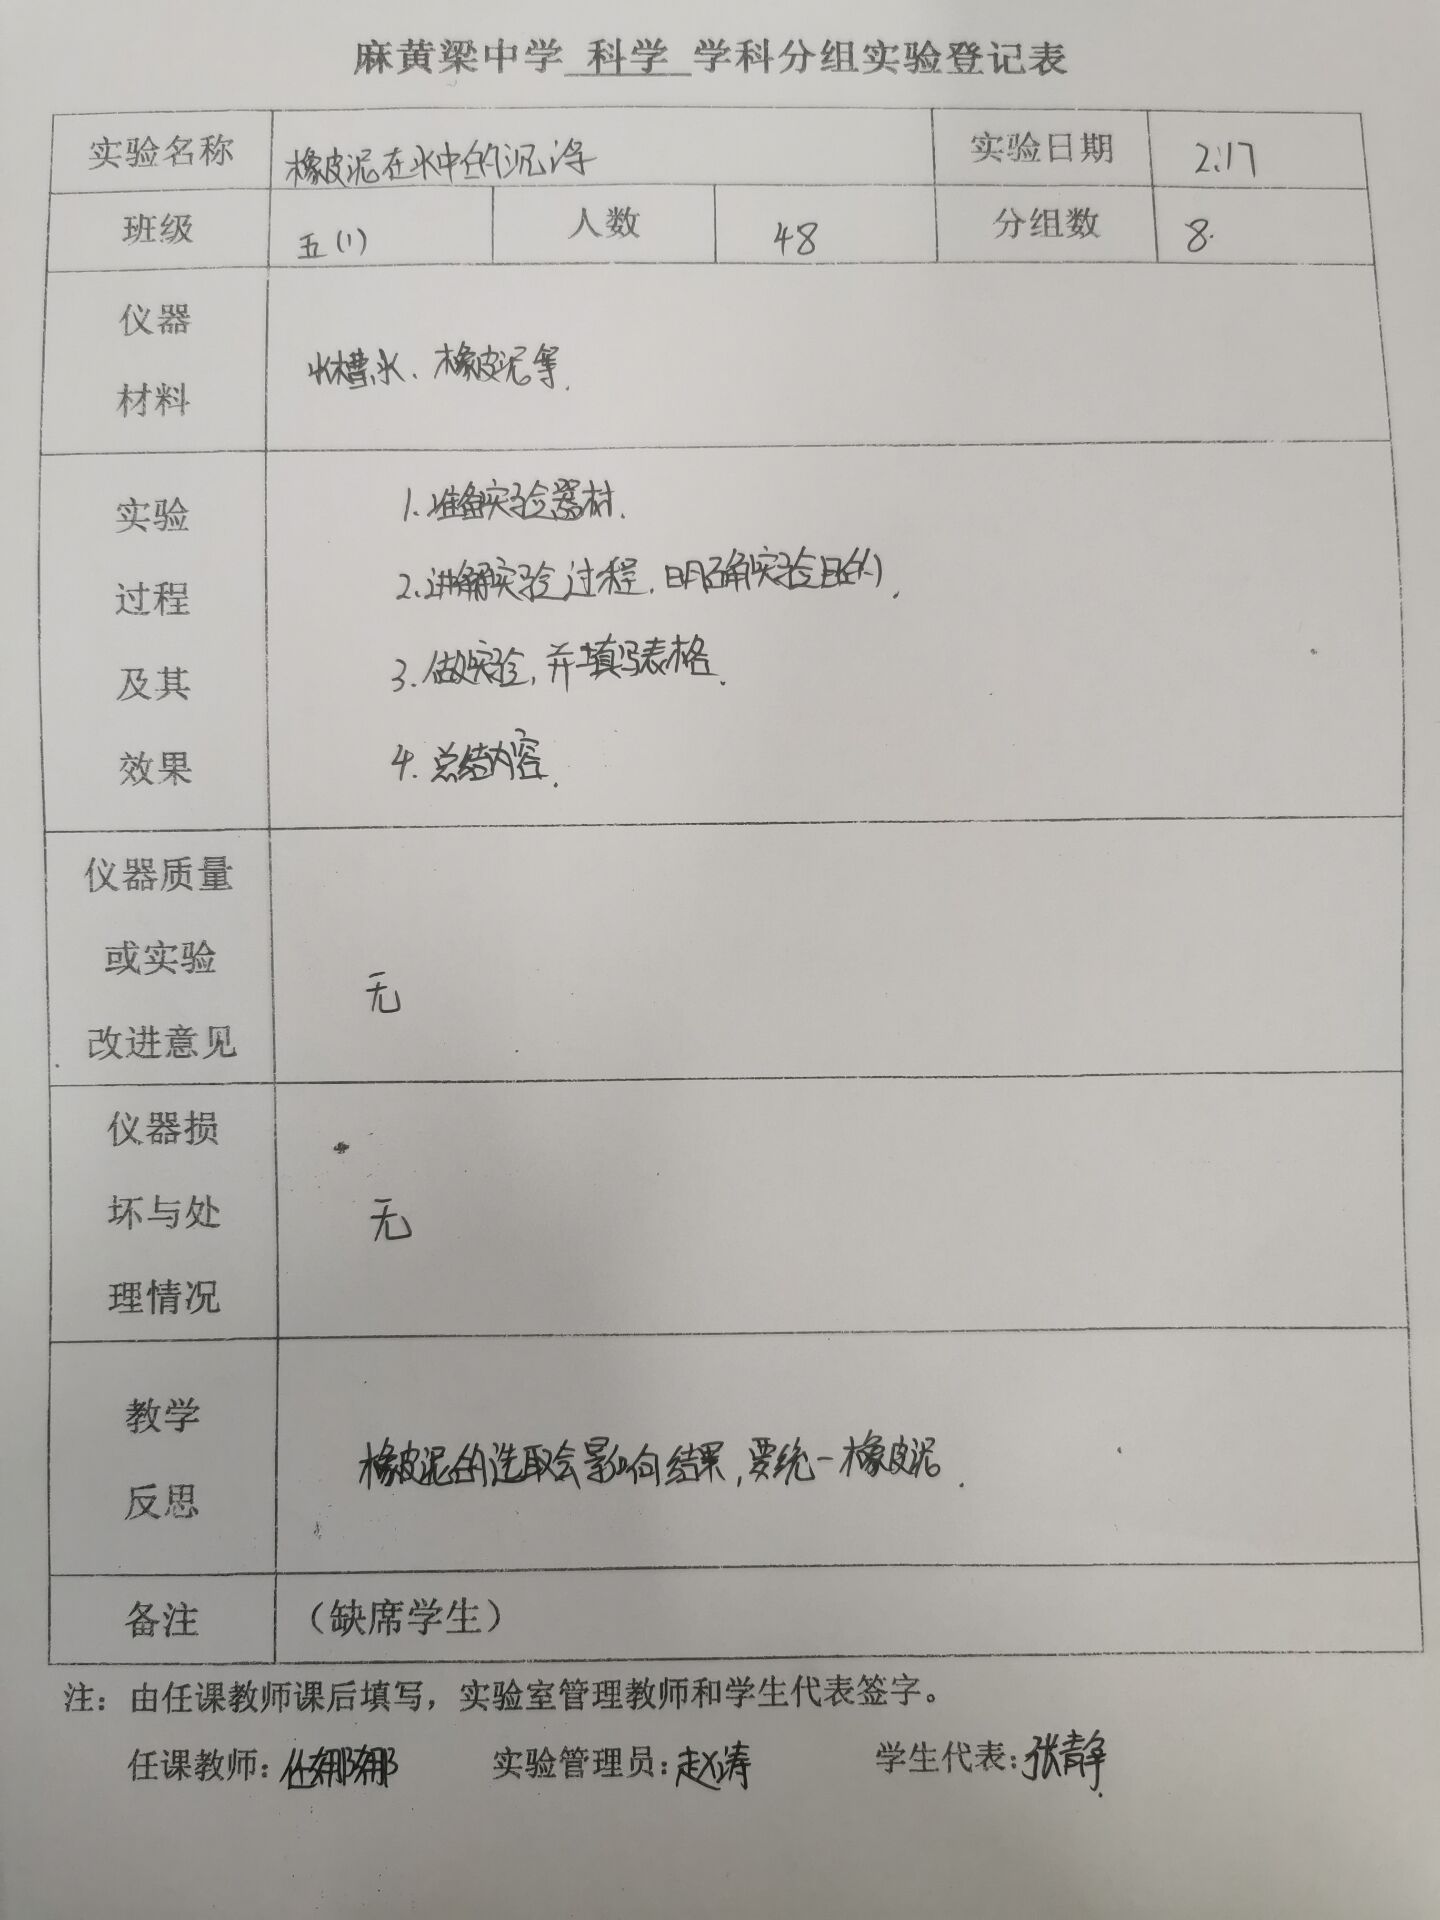 麻黄梁中学 科学 学科分组实验登记表
实验名称 橡皮泥在水中的沉浮 实验日期 2.17
班级 五(1) 人数 48 分组数 8.
仪器
材料
水槽、水、橡皮泥等.
实验
过程
及其
效果
1.准备实验器材.
2.讲解实验过程.明确实验目的.
3.做实验,并填写表格.
4.总结内容.
仪器质量
或实验
改进意见
无
仪器损
坏与处
理情况
无
教学
反思
橡皮泥的选取会影响结果,要统一橡皮泥.
备注 （缺席学生）
注：由任课教师课后填写，实验室管理教师和学生代表签字。
任课教师：任娜娜 实验管理员：赵涛 学生代表：张静